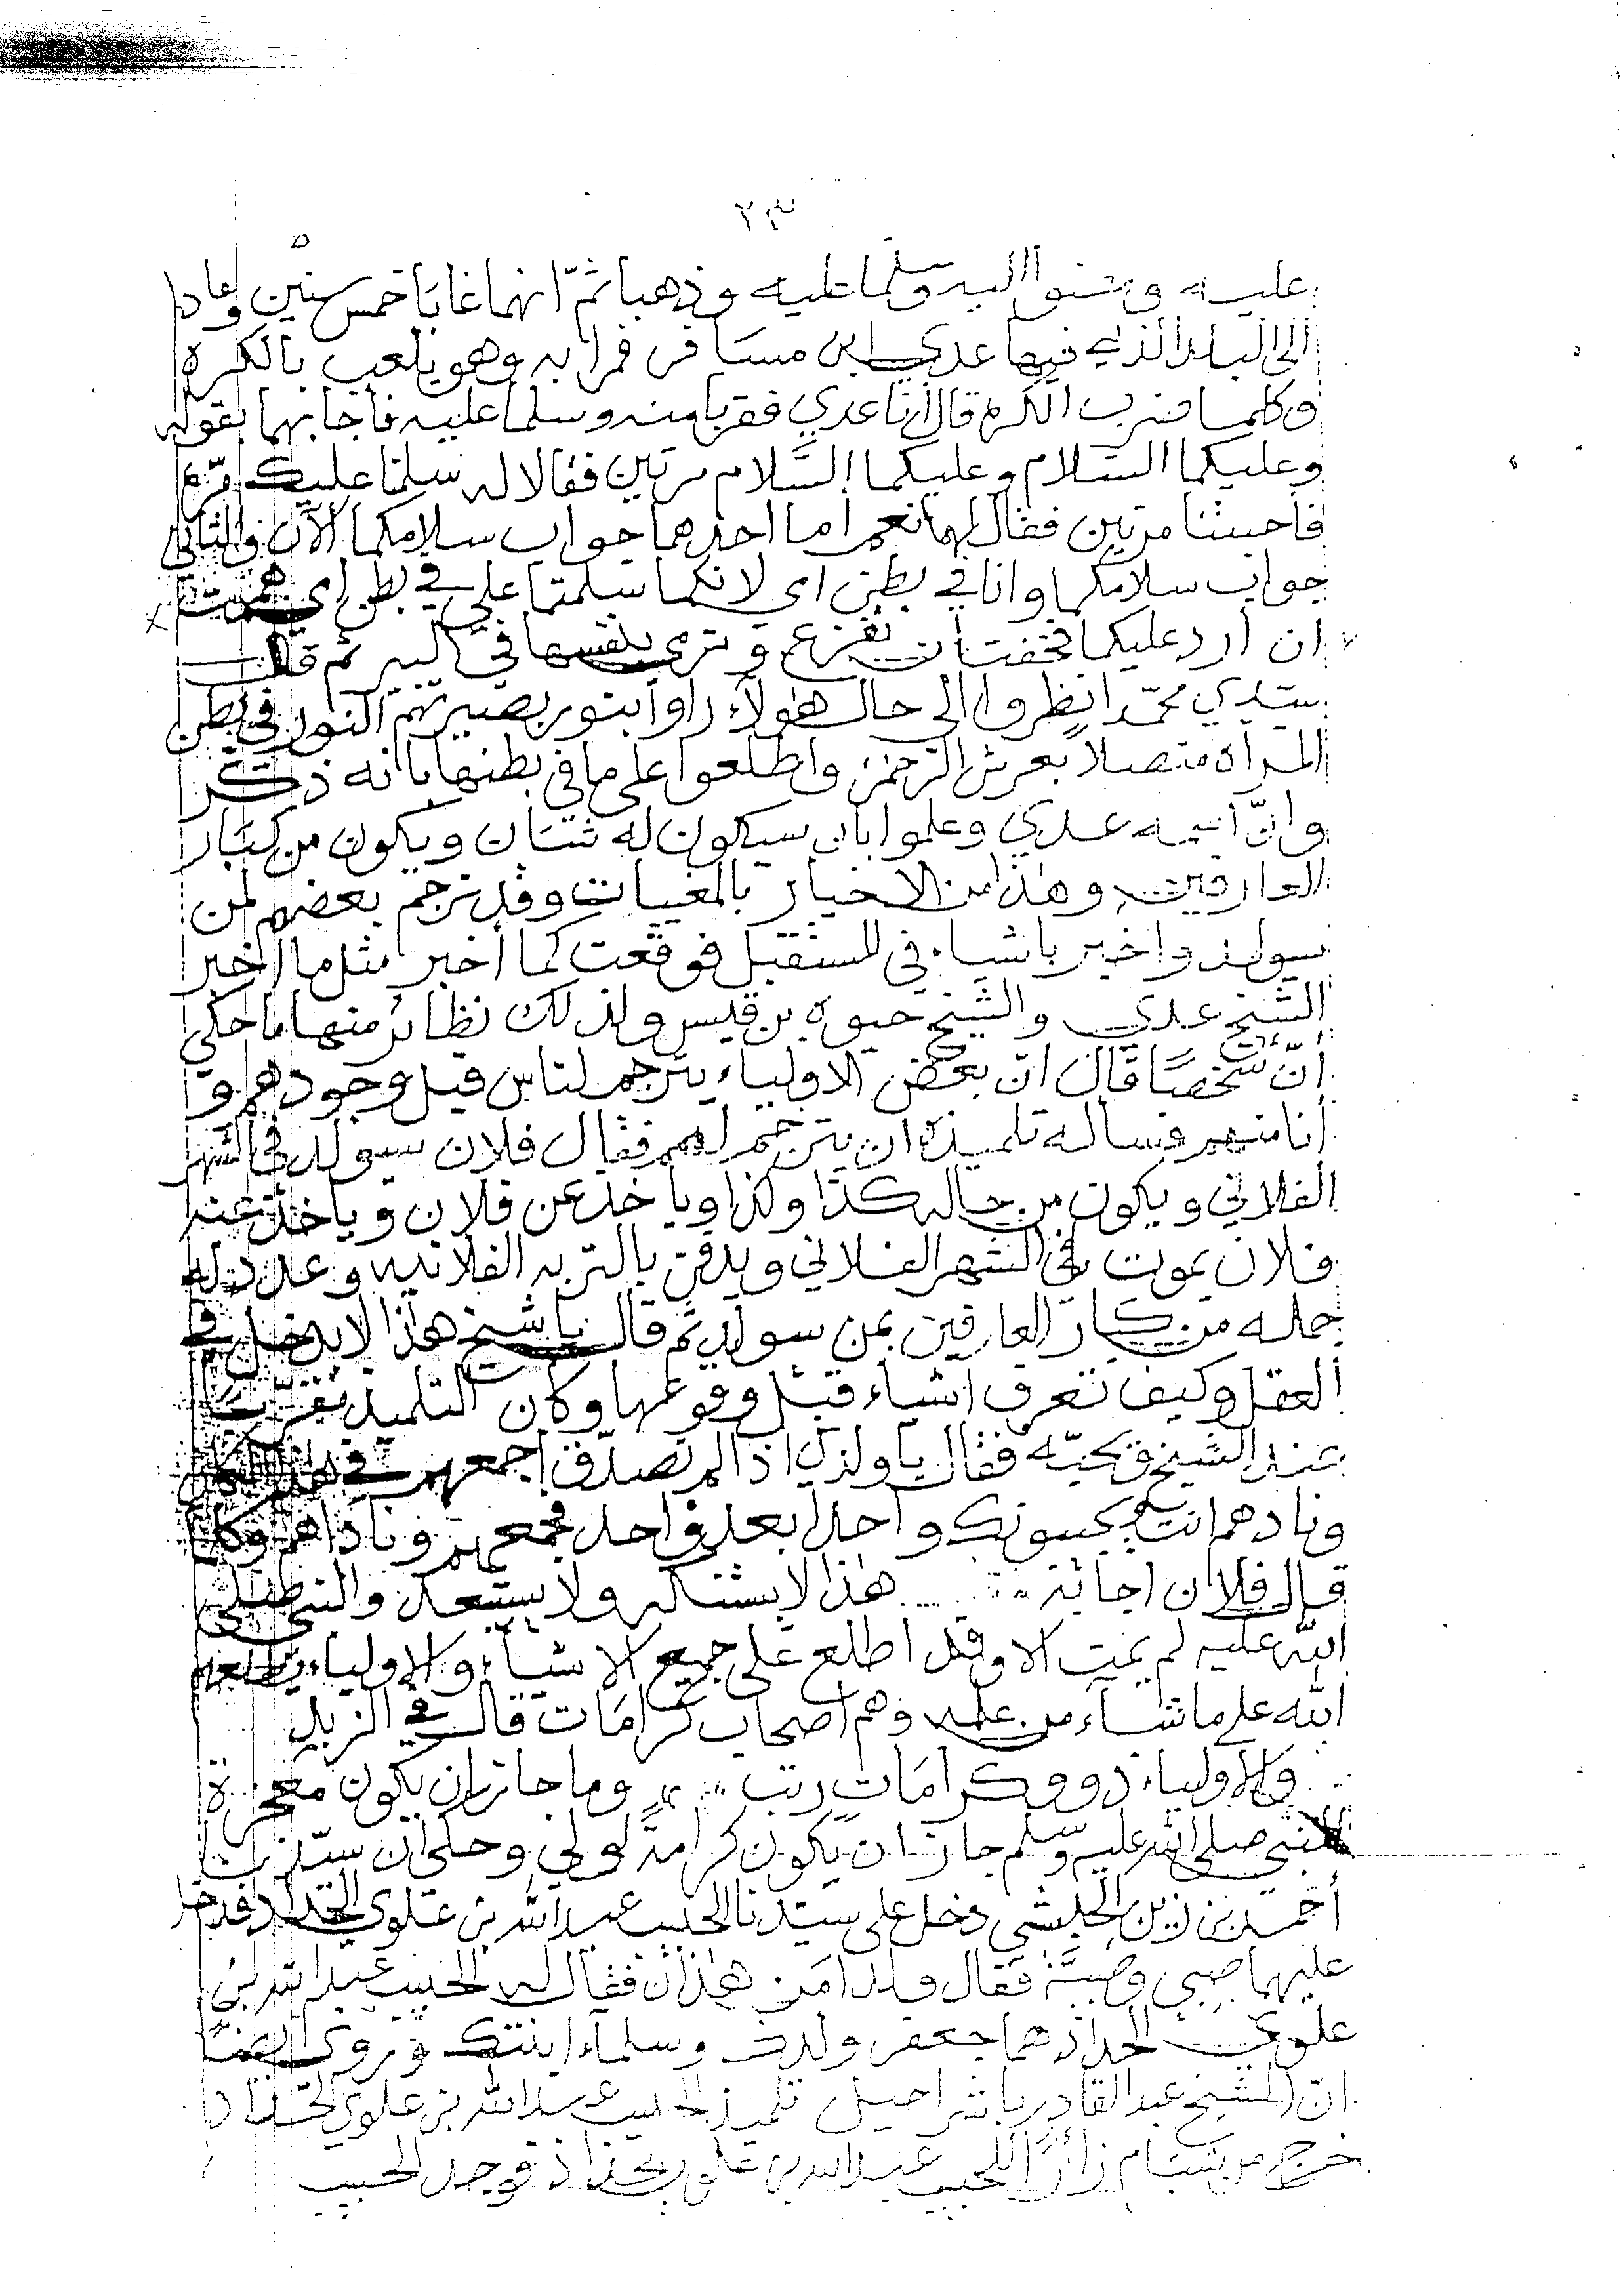 ٢٣
عليه ومشوا اليه وسلما عليه وذهبا ثمّ انهما غابا خمس سنين وعادا
الى البلد الذي فيها عدي ابن مسافر فمرا به وهو يلعب بالكره
وكلما ضرب الكره قال أنا عدي فقربا منه وسلما عليه فاجابهما بقوله
وعليكما السّلام وعليكما السّلام مرتين فقالا له سلمنا عليك مرّه
فاجبتنا مرتين فقال لهما نعم اما احدهما جواب سلامكما الآن والثاني
جواب سلامكما وانا في بطن امي لانكما سلمتما علي في بطن امي هممت
ان ارد عليكما فخفت ان تفزع وترمي بنفسها في البير ثم قال
سيدي محمّد انظروا الى حال هؤلآء راوا بنور بصيرتهم النور في بطن
المرأه متصلاً بعرش الرحمن واطلعوا على ما في بطنها بانه ذكر
وانّ اسمه عدي وعلموا بان سيكون له شان ويكون من كبار
العارفين وهذا من الاخبار بالمغيبات وقد ترجم بعضهم لمن
سيولد واخبر باشياء في المستقبل فوقعت كما أخبر مثل ما اخبر
الشيخ عدي والشيخ حيوه بن قيس ولذلك نظائر منها ما حكي
انّ شخصًا قال انّ بعض الاولياء يترجم لناس قبل وجودهم و
أنا منهم فساله تلميذه ان يترجم لهم فقال فلان سيولد في الشهر
الفلاني ويكون من حاله كذا وكذا وياخذ عن فلان وياخذ عنه
فلان يموت في الشهر الفلاني ويدفن بالتربه الفلانيه وعدد له
جمله من كبار العارفين بمن سيولد ثم قال يا شيخ هذا لا يدخل في
العقل وكيف تعرف اشياء قبل وقوعها وكان التلميذ مقرّبًا
عند الشيخ ويحبّه فقال يا ولدي اذا لم تصدّق اجمعهم في هذا
ونادهم انت يجيبونك واحدا بعد واحد فجمعهم وناداهم وكلما
قال فلان اجابه هذا لا يستنكر ولا يستبعد والنبي صلى
الله عليه لم يمت الا وقد اطلع على جميع الاشياء والاولياء يطلعهم
الله على ما شاء من علمه وهم اصحاب كرامات قال في الزبد
والأولياء ذوو كرامات رتب وما جاز ان يكون معجزة
لنبي صلى الله عليه وسلم جاز ان يكون كرامة لولي وحكى ان سيّدنا
أحمد بن زين الحبشي دخل على سيّدنا الحبيب عبد الله بن علوي الحداد فدخل
عليهما صبي وصبيّة فقال ولدا من هذان فقال له الحبيب عبد الله بن
علوي الحداد هما جعفر ولدك وسلماء ابنتك وروي ايضًا
انّ الشيخ عبد القادر باشراحيل تلميذ الحبيب عبد الله بن علوي الحداد
خرج من شبام زائرًا للحبيب عبد الله بن علوي الحداد فوجد الحبيب